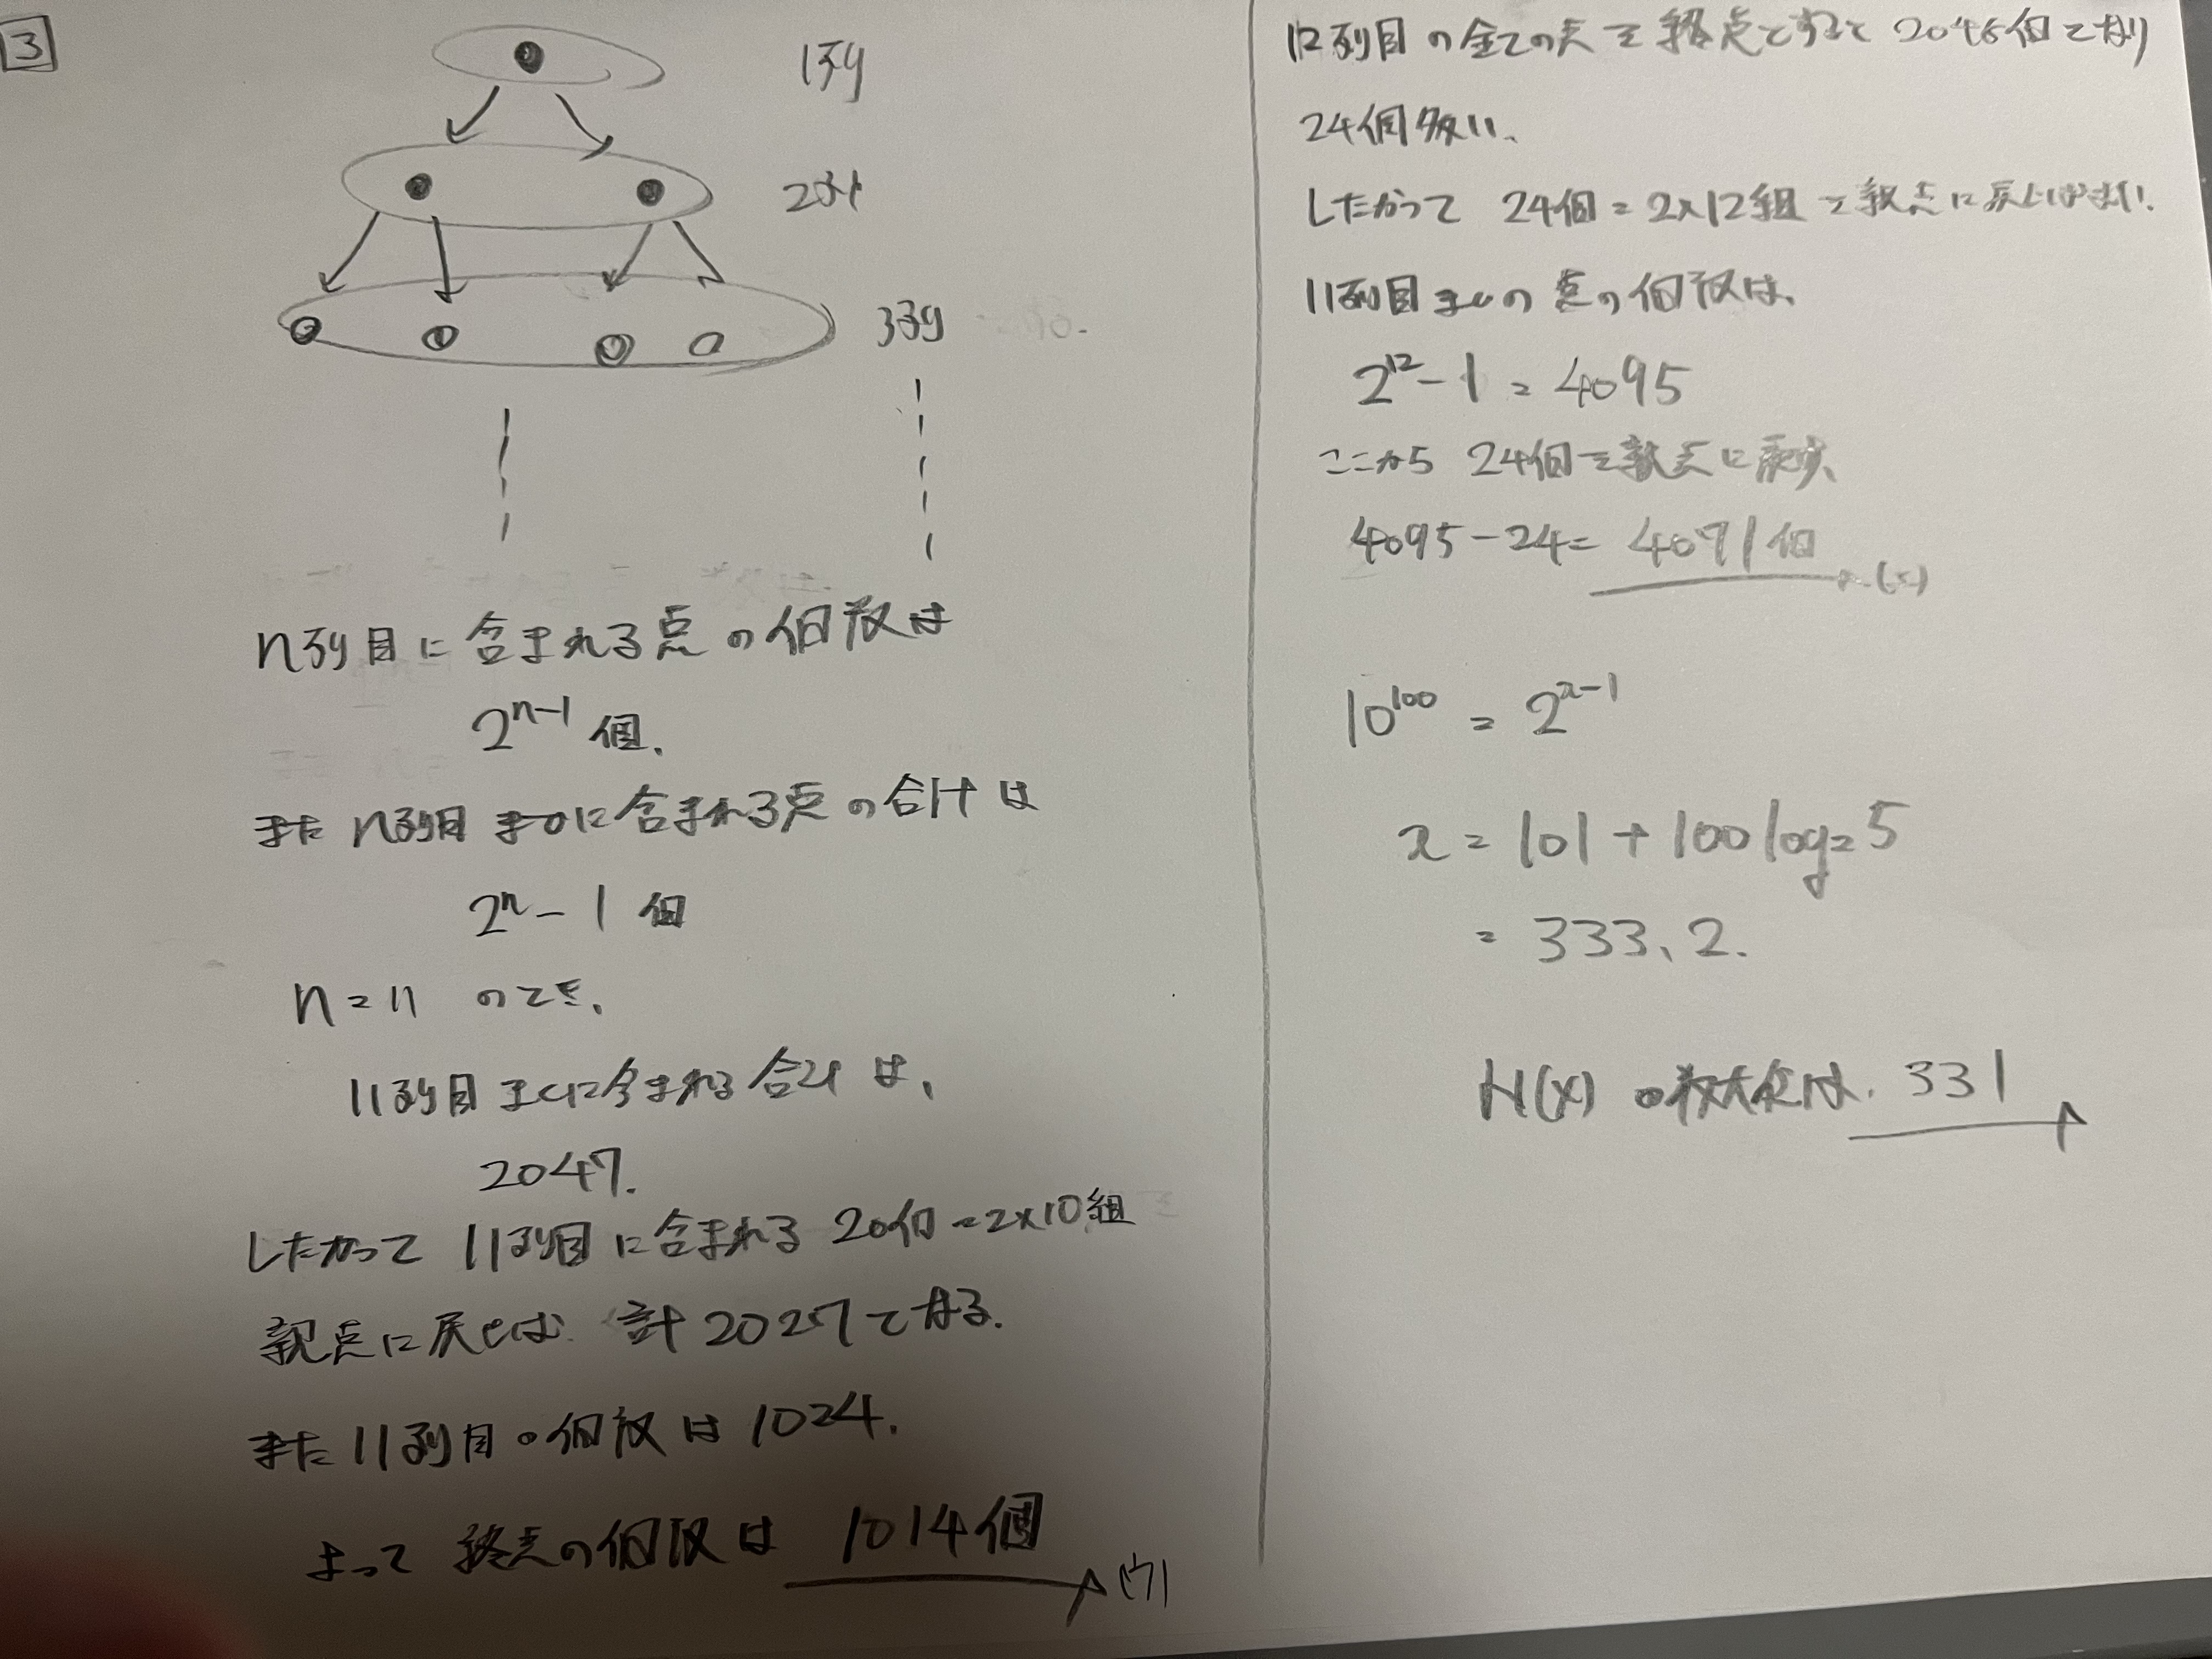 3
1列
2列
3列
n列目に含まれる点の個数は
2^{n-1} 個.
また n列目までに含まれる点の合計は
2^n - 1 個
n = 11 のとき、
11列目までに含まれる合計は、
2047.
したがって 11列目に含まれる 20個=2×10組
親点に戻せば 計2027となる.
また11列目の個数は1024.
よって 終点の個数は 1014個 (ウ)
12列目の全ての点を終点とすると 2048個となり
24個多い、
したがって 24個=2×12組を親点に戻せばよい.
11列目までの点の個数は、
2^{12} - 1 = 4095
ここから 24個を親点に戻す、
4095-24= 4071個
10^{100} = 2^{x-1}
x = 101 + 100 log_2 5
= 333.2.
H(x) の最大値は. 331